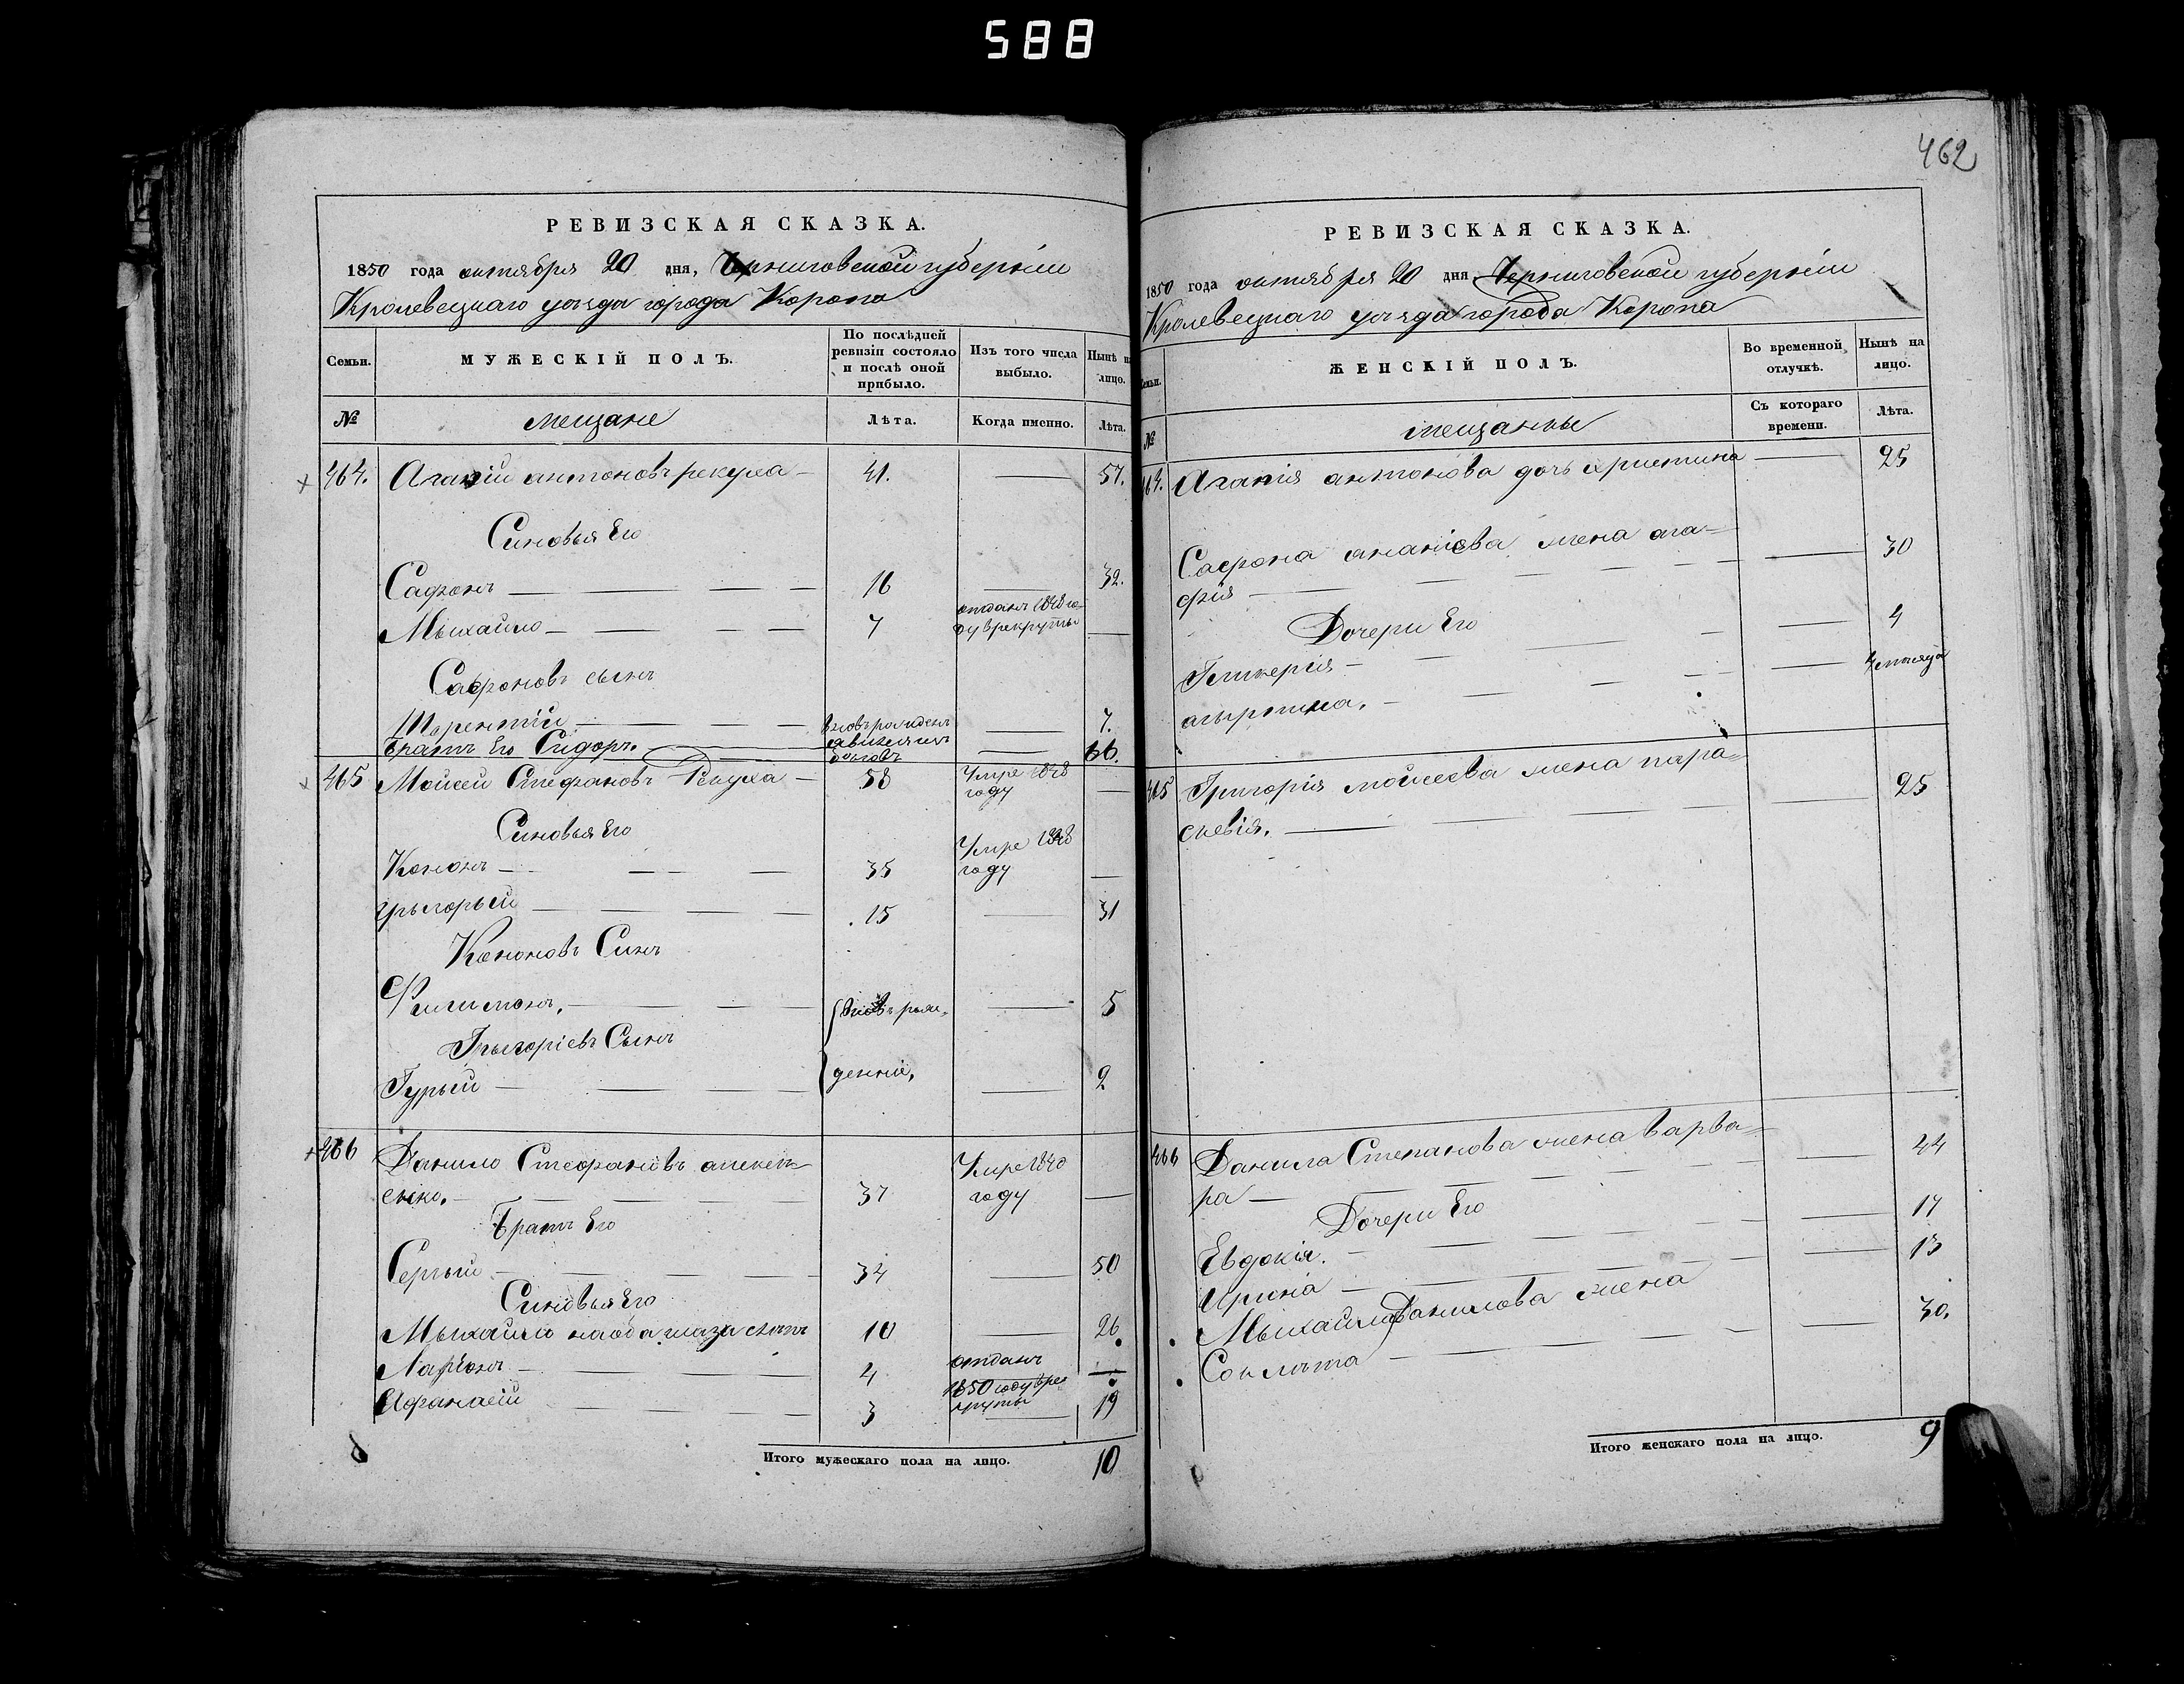 588
462
РЕВИЗСКАЯ СКАЗКА.
1850 года октября 20 дня, Черниговской губерніи
Кролевецкаго уезда города Коропа
Семьи.
МУЖЕСКІЙ ПОЛЪ.
По послѣдней ревизіи состояло и послѣ оной прибыло.
Изъ того числа выбыло.
Нынѣ на лицо.
№
мещане
Лѣта.
Когда именно.
Лѣта.
464. антоновъ рекуха — 41. — 57.
Синовья Его
Сафонъ — 16 — 32.
Мыхайло — 7 отданъ 1848 го-
ду врекруты —
Сафроновъ сынъ
Терентій — вновърожденъ — 7.
братъ Его Сидоръ. — 66.
465 Мойсей Стефановъ Рекуха — 58 Умре 1848
году —
Синовья Его
Кононъ — 35 Умре 1848
году —
Грыгорый — 15 — 31
Кононовъ Синъ
Филимонъ, — вновь рож- — 5
Грыгоріевъ Сынъ
Гурый — денніе, — 2
466 Данило Стефановъ алексе-
енко. — 37 Умре 1840
году —
Братъ Его
Сергый — 34 — 50
Синовья Его
Мыхайло наоба глаза слепъ 10 — 26
Ларіонъ — 4 отданъ
1850 году врек
руты —
Афанасій — 3 — 19
Итого мужескаго пола на лицо. 10
РЕВИЗСКАЯ СКАЗКА.
1850 года октября 20 дня Черниговской губерніи
Кролевецкаго уезда города Коропа
Семьи.
ЖЕНСКІЙ ПОЛЪ.
Во временной отлучкѣ.
Нынѣ на лицо.
№
мещанкы
Съ котораго времени.
Лѣта.
464. антонова дочь христина — 25
Сафрона ананіева жена ага-
фія — 30
Дочери Его
Гликерія — 4
— 4 месяца
465 Григорія мойсеева жена пара-
скевія. — 25
466 Данила Степанова жена варва-
ра — 44
Дочери Его
Евдокія. — 17
Ирина — 13
Мыхайла Данилова жена
— 30.
Итого женскаго пола на лицо. 9